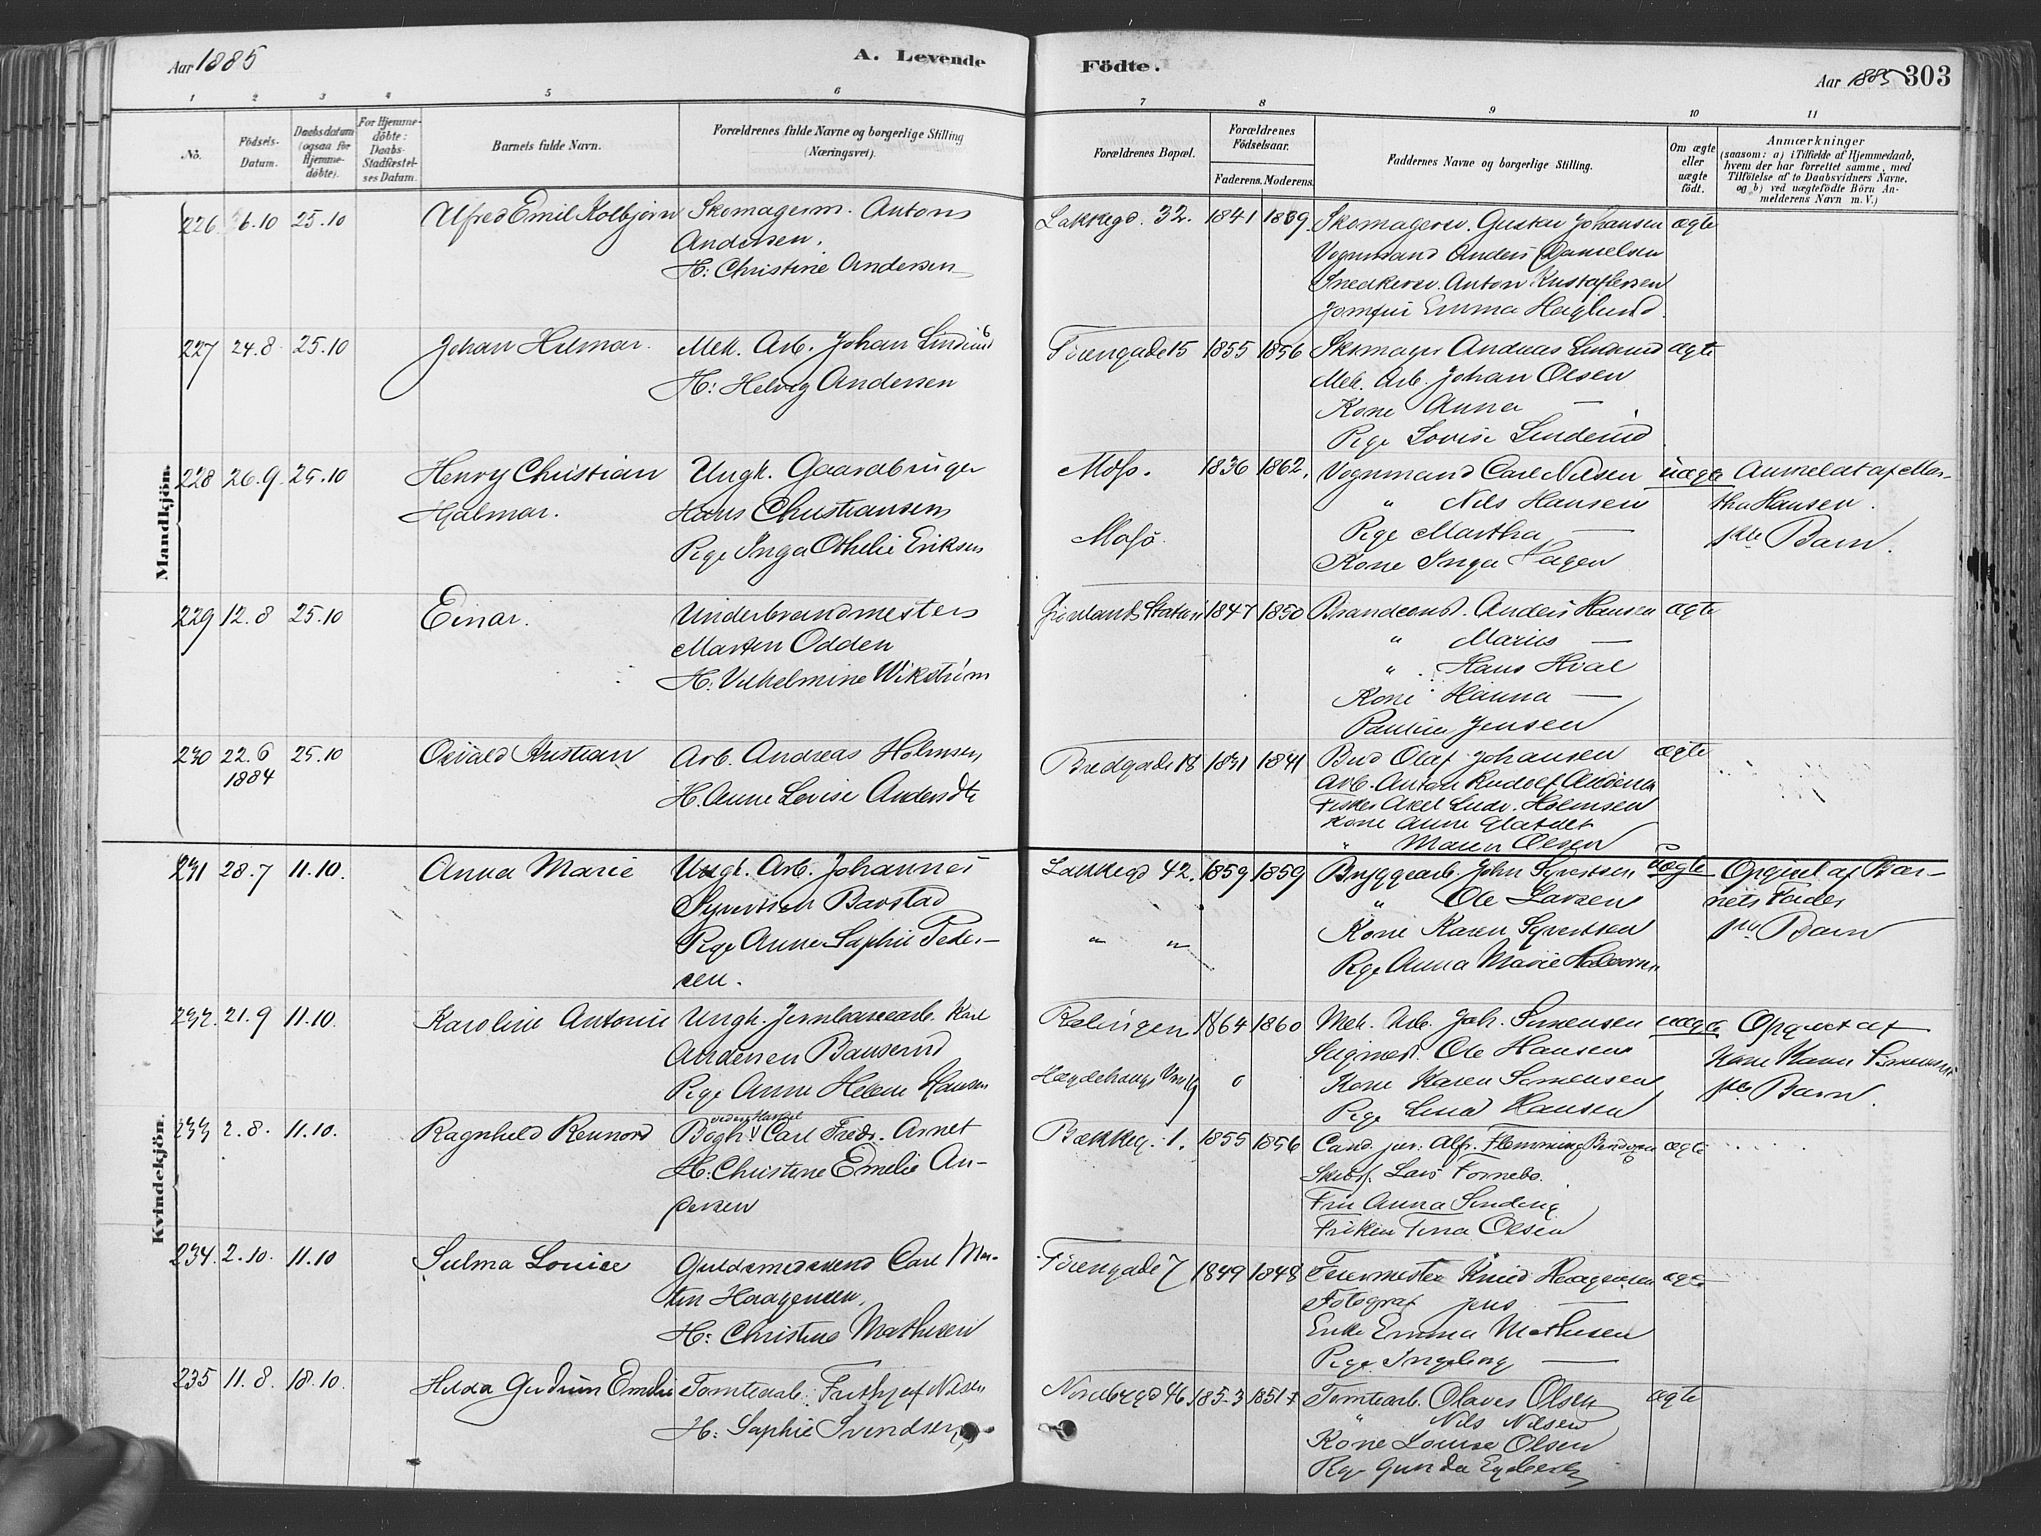 Aar 1885
A. Levende
Födte.
Aar 1885
303
1 2 3 4 5 6 7 8 9 10 11
No.
Födsels-
Datum.
Daabsdatum
(ogsaa for
Hjemme-
döbte).
For Hjemme-
döbte:
Daabs-
Stadfæstel-
ses Datum.
Barnets fulde Navn.
Forældrenes fulde Navne og borgerlige Stilling
(Næringsvei).
Forældrenes Bopæl.
Forældrenes
Födselsaar.
Faderens. Moderens.
Faddernes Navne og borgerlige Stilling.
Om ægte
eller
uægte
födt.
Anmærkninger
(saasom: a) i Tilfælde af Hjemmedaab,
hvem der har forrettet samme, med
Tilföielse af to Daabsvidners Navne.
og b) ved uægtefödte Börn An-
melderens Navn m. V.)
Mandkjön.
226 6.10 25.10 Alfred Emil Kolbjørn
Skomagerm. Antons
Andersen.
H: Christine Andersen
Lakkegd. 32. 1841
Skomagersv. Gustav Johansen
Vognmand Anders Danielsen
Snedkersv. Anton Kustafsen
Jomfru Emma Haglund
ægte
227 24.8 25.10 Johan Hilmar.
Mek. Arb. Johan
H: Helvig Andersen
Töiengade 15 1855 1856
Skomager Andreas
Mek. Arb. Johan Olsen
Kone Anna —
Pige Lovise
ægte
228 26.9 25.10 Henry Christian
Hjalmar.
Ungk. Gaardbruger
Hans Christiansen
Pige Inga Othelie Eriksen
Moss.
Moss.
1836 1862.
Vognmand Carl Nilsen
" Nils Hansen
Pige Martha —
Kone Inga Hagen
uægte
Anmeldt af Mar-
tha Hansen.
1ste Barn.
229 12.8 25.10 Einar.
Underbrandmester
Marten Odden
H: Vilhelmine Wikström
Grönlands Station 1847 1850
Brandconst. Anders Hansen
" Marius —
" Hans Hval
Kone Hanna —
Pauline Jensen
ægte
230 22.6 25.10
1884
Osvald Kristian
Arb. Andreas Holmsen
H. Anne Lovise Andersdt.
Bredgade 18 1841
Bud Olaf Johansen
Arb. Anton Rudolf
Fisker Axel Ludv. Holmsen
Kone Anne
" Maren Olsen
ægte
Kvindekjön.
231 28.7 11.10. Anna Marie
Ungk. Arb. Johannes
Syvertsen Bavstad
Pige Anne Sophie Peder-
sen.
Lakkegd 42. 1859 1859
" "
Bryggearb. John Syvertsen
" Ole Larsen
Kone Karen Syvertsen
Pige Anna Marie
uægte
Opgivet af Bar-
nets Fader
1ste Barn
232. 21.9 11.10. Karoline Antonie
Ungk. Jernbanearb. Karl
Andersen Bauserud
Pige Anne Helene Hansen
Rælingen 1864 1860
Hægdehaugs
Mek. Arb. Joh. Simensen
Ole Hansen
Kone Karen Simensen
Pige Lina Hansen
uægte
Opgivet af
Kone Karen Simensen
1ste Barn.
233 2.8. 11.10. Ragnhild Rennord
Bogh. Carl Fredr. Arnet
H: Christine Emilie An-
dersen
Bækkeg. 1. 1855 1856
Cand. jur. Alfr. Flemming
Skibsf. Lars Fornebo.
Fru Anna Sinding
Fröken Tina Olsen
ægte
234. 2.10. 11.10 Selma Louise
Guldsmedsvend Carl Mar-
tin Haagensen,
H: Christine Mathisen
Töiengade 7 1849 1848
Feiermester Knud Haagensen
Fotograf Jens —
Enke Emma Mathisen
Pige Ingeborg —
ægte
235 11.8. 18.10. Hilda Gudrun Emilie
Tomtearb. Frithjof Nilsen
H: Sophie Svendsen
Nordbygd 46. 1853 1851
Tomtearb. Olaves Olsen
" Nils Nilsen
Kone Louise Olsen
Pige Gunda
ægte